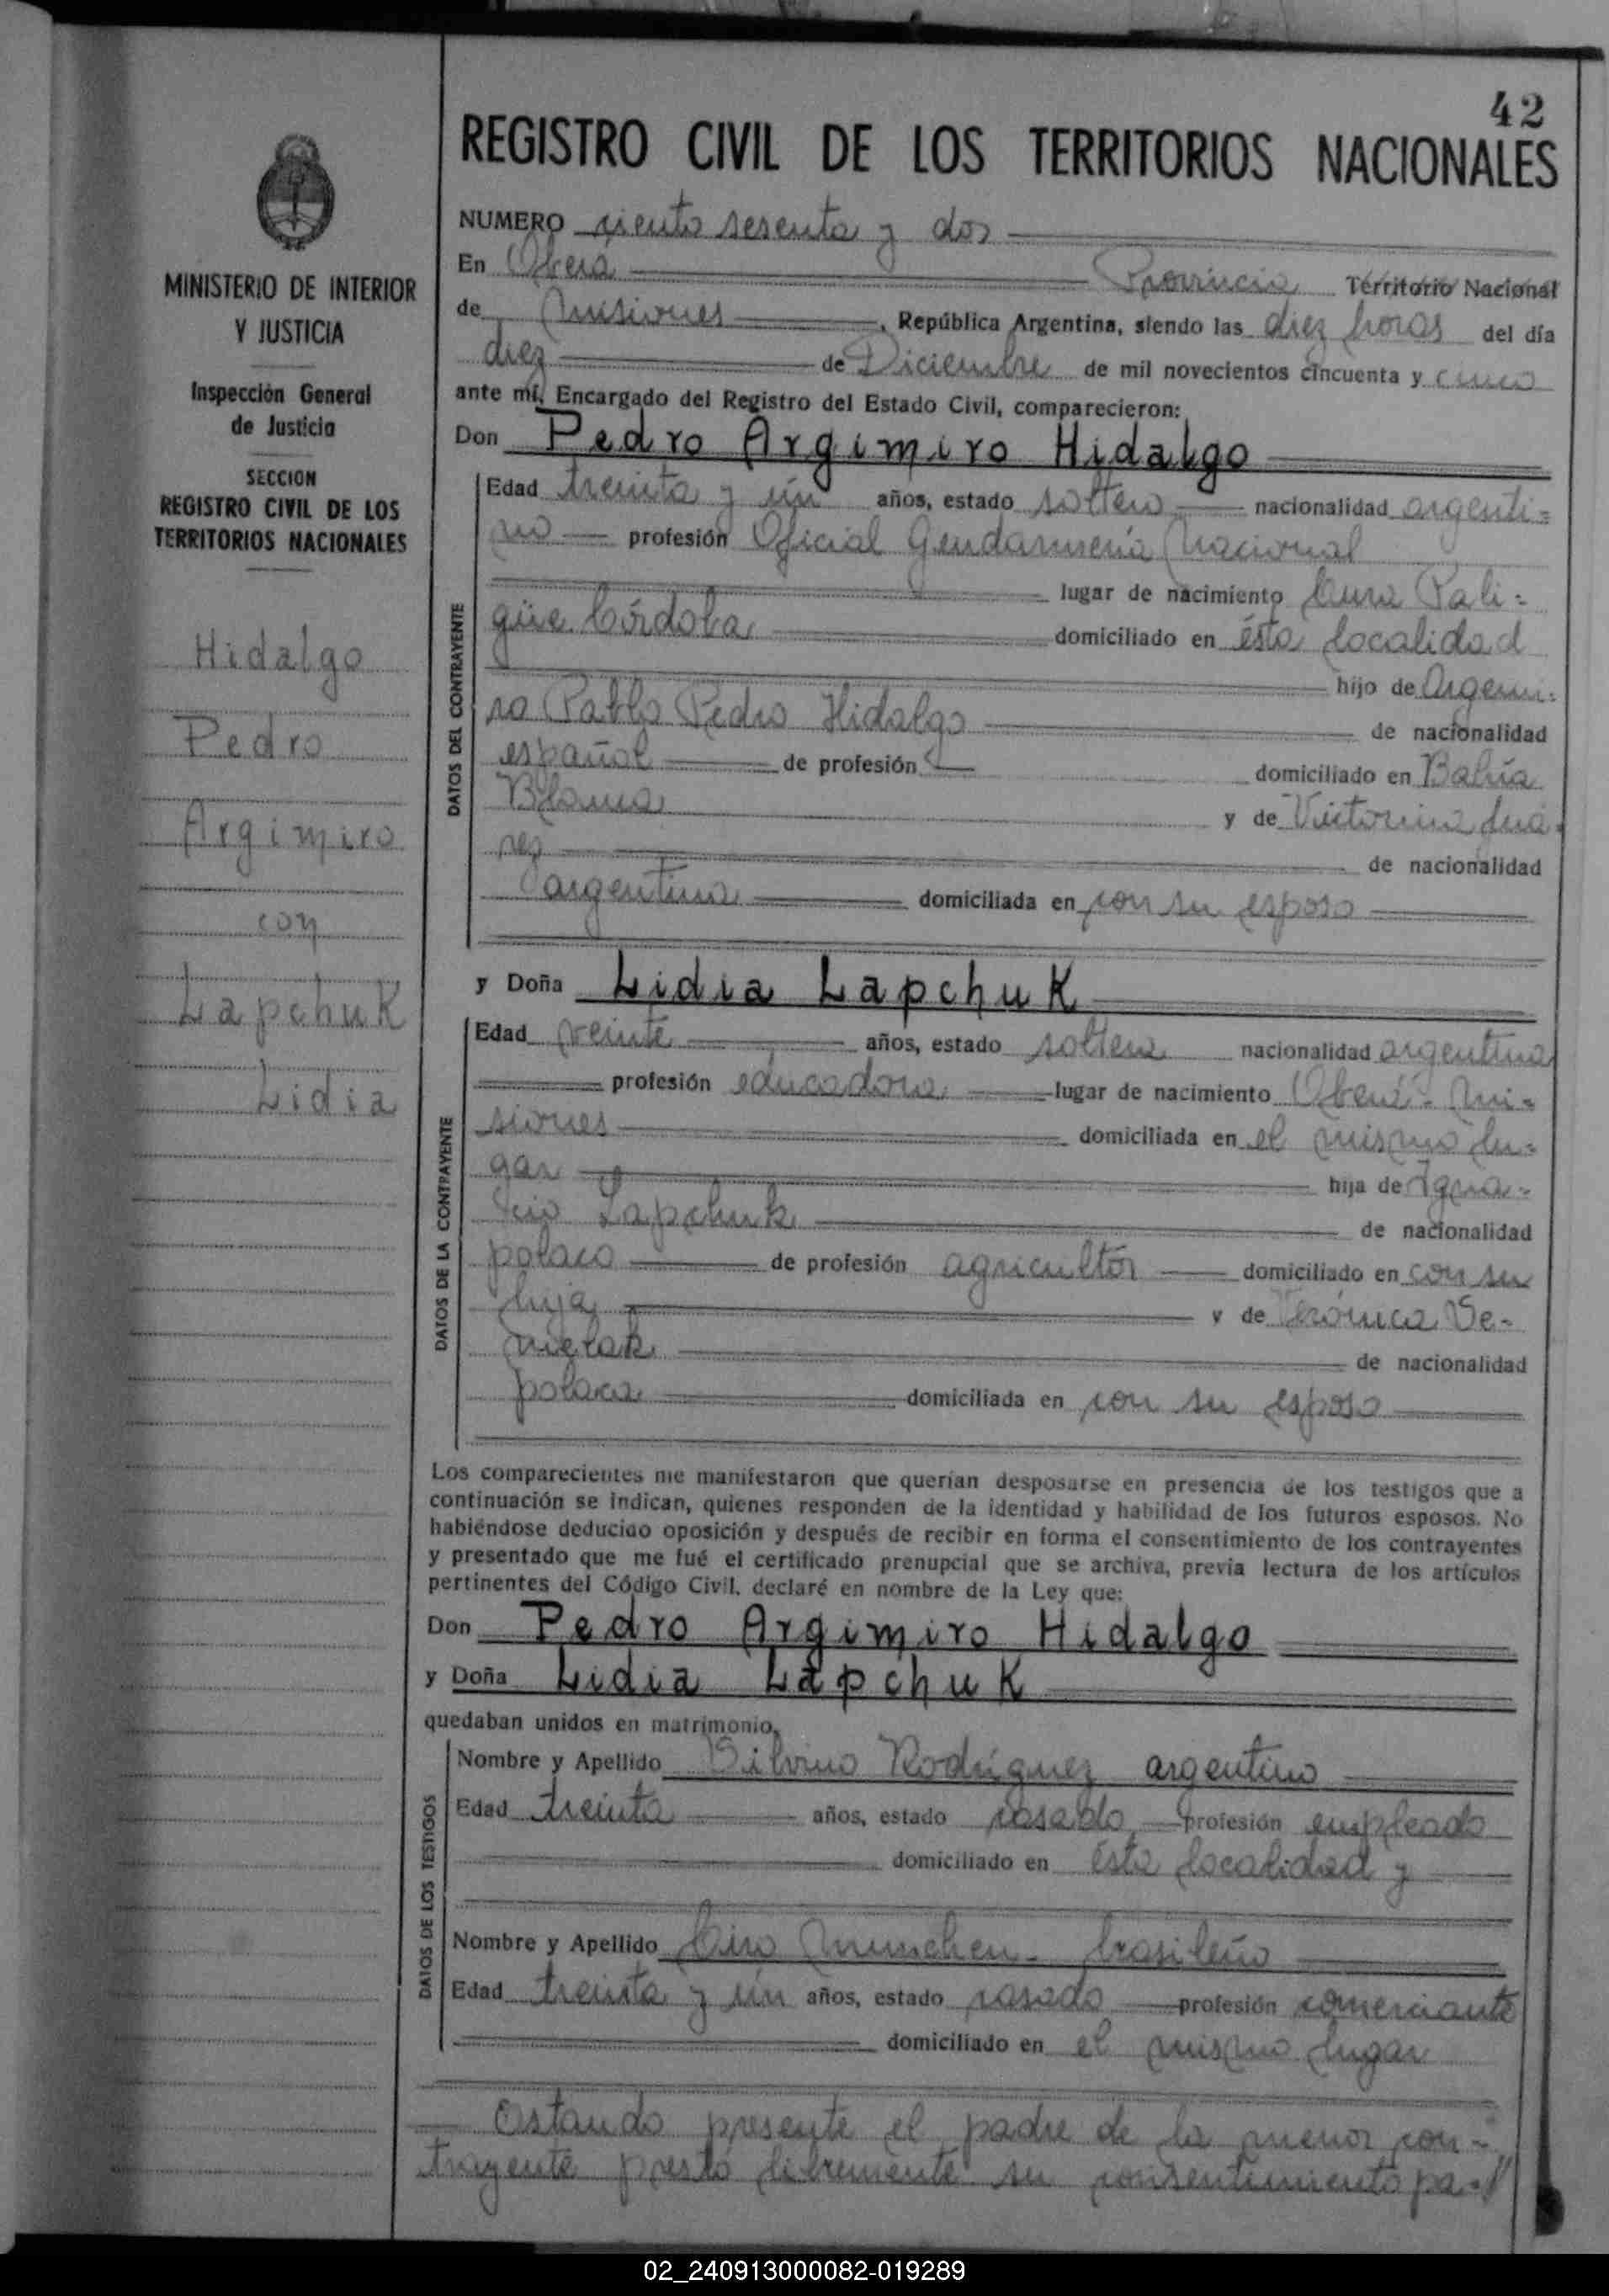 42
REGISTRO CIVIL DE LOS TERRITORIOS NACIONALES
MINISTERIO DE INTERIOR
Y JUSTICIA
Inspección General
de Justicia
SECCION
REGISTRO CIVIL DE LOS
TERRITORIOS NACIONALES
Hidalgo
Pedro
Argimiro
con
Lapchuk
Lidia
NUMERO ciento sesenta y dos
En Oberá Provincia Territorio Nacional
de Misiones, República Argentina, siendo las diez horas del día
diez de Diciembre de mil novecientos cincuenta y cinco
ante mí, Encargado del Registro del Estado Civil, comparecieron:
Don Pedro Argimiro Hidalgo
DATOS DEL CONTRAYENTE
Edad treinta y ún años, estado soltero nacionalidad argenti=
no profesión Oficial Gendarmería Nacional
lugar de nacimiento Cura Pali=
güe Córdoba domiciliado en ésta localidad
hijo de
Pablo Pedro Hidalgo de nacionalidad
español de profesión domiciliado en Bahía
Blanca y de Victorina Juá=
rez de nacionalidad
argentina domiciliada en con su esposo
y Doña Lidia Lapchuk
DATOS DE LA CONTRAYENTE
Edad veinte años, estado soltera nacionalidad argentina
profesión educadora lugar de nacimiento Oberá - Mi=
siones domiciliada en el mismo lu=
gar hija de Igna=
cio Lapchuk de nacionalidad
polaco de profesión agricultór domiciliado en con su
hija y de Verónica
de nacionalidad
polaca domiciliada en con su esposo
Los comparecientes me manifestaron que querían desposarse en presencia de los testigos que a
continuación se indican, quienes responden de la identidad y habilidad de los futuros esposos. No
habiéndose deducido oposición y después de recibir en forma el consentimiento de los contrayentes
y presentado que me fué el certificado prenupcial que se archiva, previa lectura de los artículos
pertinentes del Código Civil, declaré en nombre de la Ley que:
Don Pedro Argimiro Hidalgo
y Doña Lidia Lapchuk
quedaban unidos en matrimonio,
DATOS DE LOS TESTIGOS
Nombre y Apellido Silvino Rodríguez argentino
Edad treinta años, estado casado profesión empleado
domiciliado en ésta localidad y
Nombre y Apellido Ciro Munchen - brasileño
Edad treinta y ún años, estado casado profesión comerciante
domiciliado en el mismo lugar
Estando presente el padre de la menor con=
trayente prestó libremente su consentimiento pa=
02_240913000082-019289